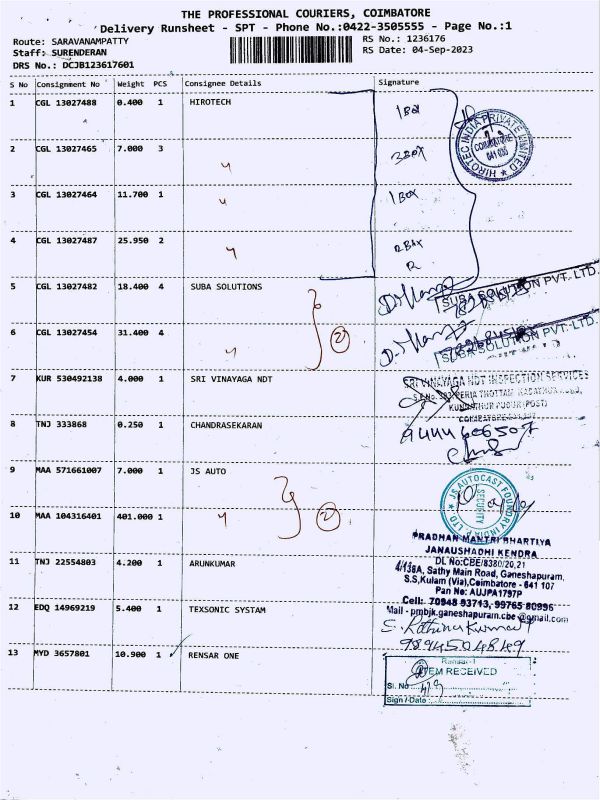 THE PROFESSIONAL COURIERS, COIMBATORE
Delivery Runsheet - SPT - Phone No.:0422-3505555 - Page No.:1
Route: SARAVANAMPATTY
RS No.: 1236176
Staff: SURENDERAN
RS Date: 04-Sep-2023
DRS No.: DCJB123617601
S No Consignment No Weight PCS Consignee Details Signature
1 CGL 13027488 0.400 1 HIROTECH 1 BOX
HIROTEC INDIA PRIVATE LIMITED
COIMBATORE
641 006
2 CGL 13027465 7.000 3 〃 3 BOX
3 CGL 13027464 11.700 1 〃 1 BOX
4 CGL 13027487 25.950 2 〃 2 BOX
5 CGL 13027482 18.400 4 SUBA SOLUTIONS
SUBA SOLUTION PVT. LTD.
6 CGL 13027454 31.400 4 〃 2
SUBA SOLUTION PVT. LTD.
7 KUR 530492138 4.000 1 SRI VINAYAGA NDT
SRI VINAYAGA NDT INSPECTION SERVICES
8 TNJ 333868 0.250 1 CHANDRASEKARAN
9444606507
9 MAA 571661007 7.000 1 JS AUTO
J.S. AUTOCAST FOUNDRY INDIA P. LTD
SECURITY
10 MAA 104316401 401.000 1 〃 2
PRADHAN MANTRI BHARTIYA
JANAUSHADHI KENDRA
11 TNJ 22554803 4.200 1 ARUNKUMAR
DL No:CBE/8380/20,21
4/138A, Sathy Main Road, Ganeshapuram,
S.S,Kulam (Via),Coimbatore - 641 107
Pan No: AUJPA1797P
12 EDQ 14969219 5.400 1 TEXSONIC SYSTAM
Cell: 70948 93713, 99765 80996
Mail - pmbjk.ganeshapuram.cbe@gmail.com
S. Rathinakumar
7894504849
13 MYD 3657801 10.900 1 RENSAR ONE
ITEM RECEIVED
Sl. No
4/9
Sign / Date